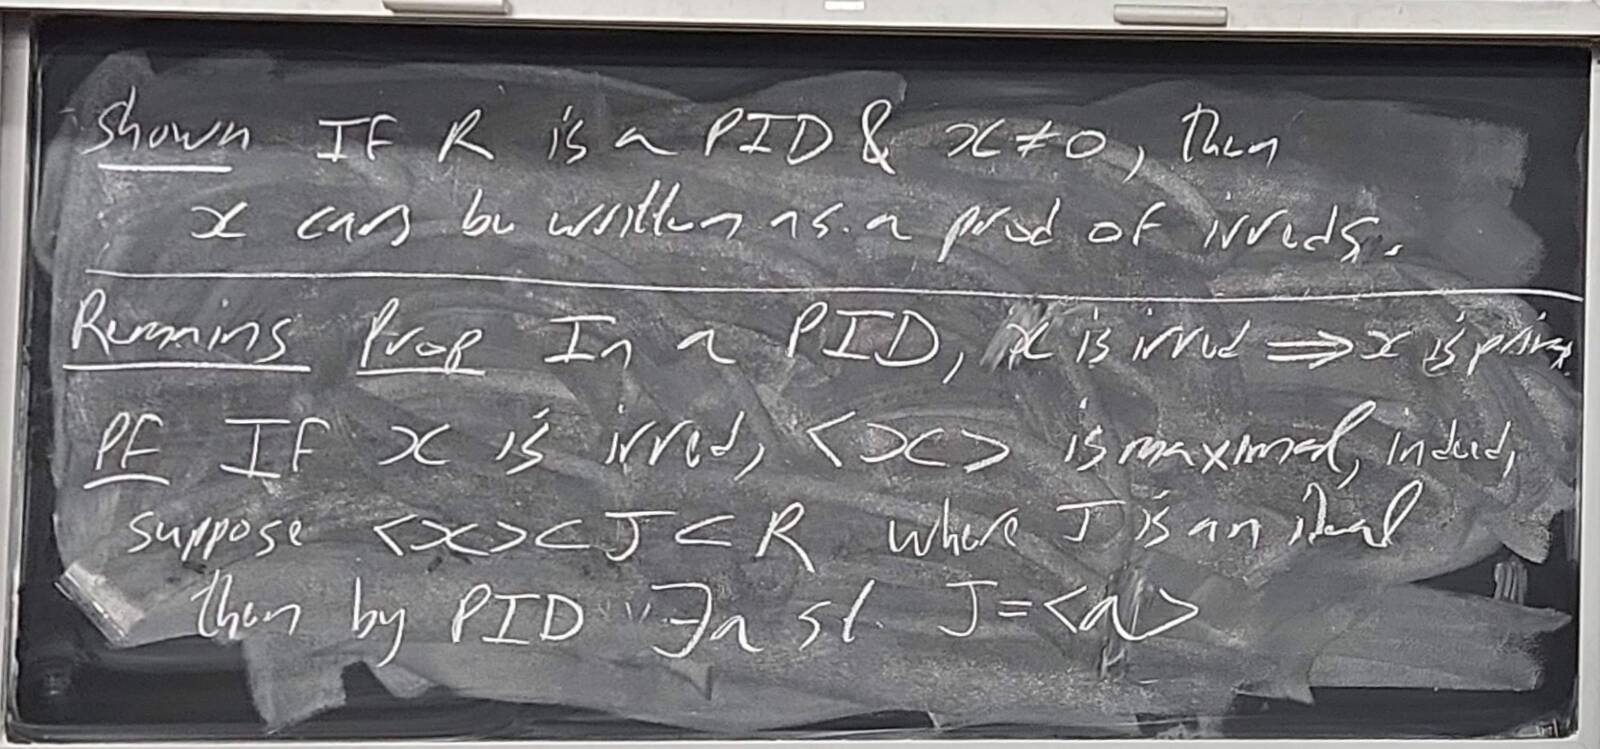 Shown IF R is a PID & x≠0, then
x can be written as a prod of irreds.
Remains Prop In a PID, x is irred ⟹ x is prime
PF IF x is irred, <x> is maximal, indeed,
suppose <x> ⊂ J ⊂ R where J is an ideal
then by PID ∃ a st. J = <a>